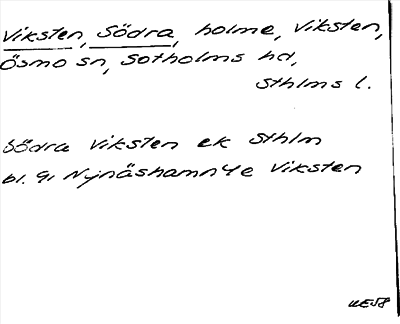 Viksten, Södra, holme, Viksten,
Ösmo sn, Sotholms hd,
Sthlms l.
Södra Viksten ek Sthlm
bl. 91 Nynäshamn 4e Viksten